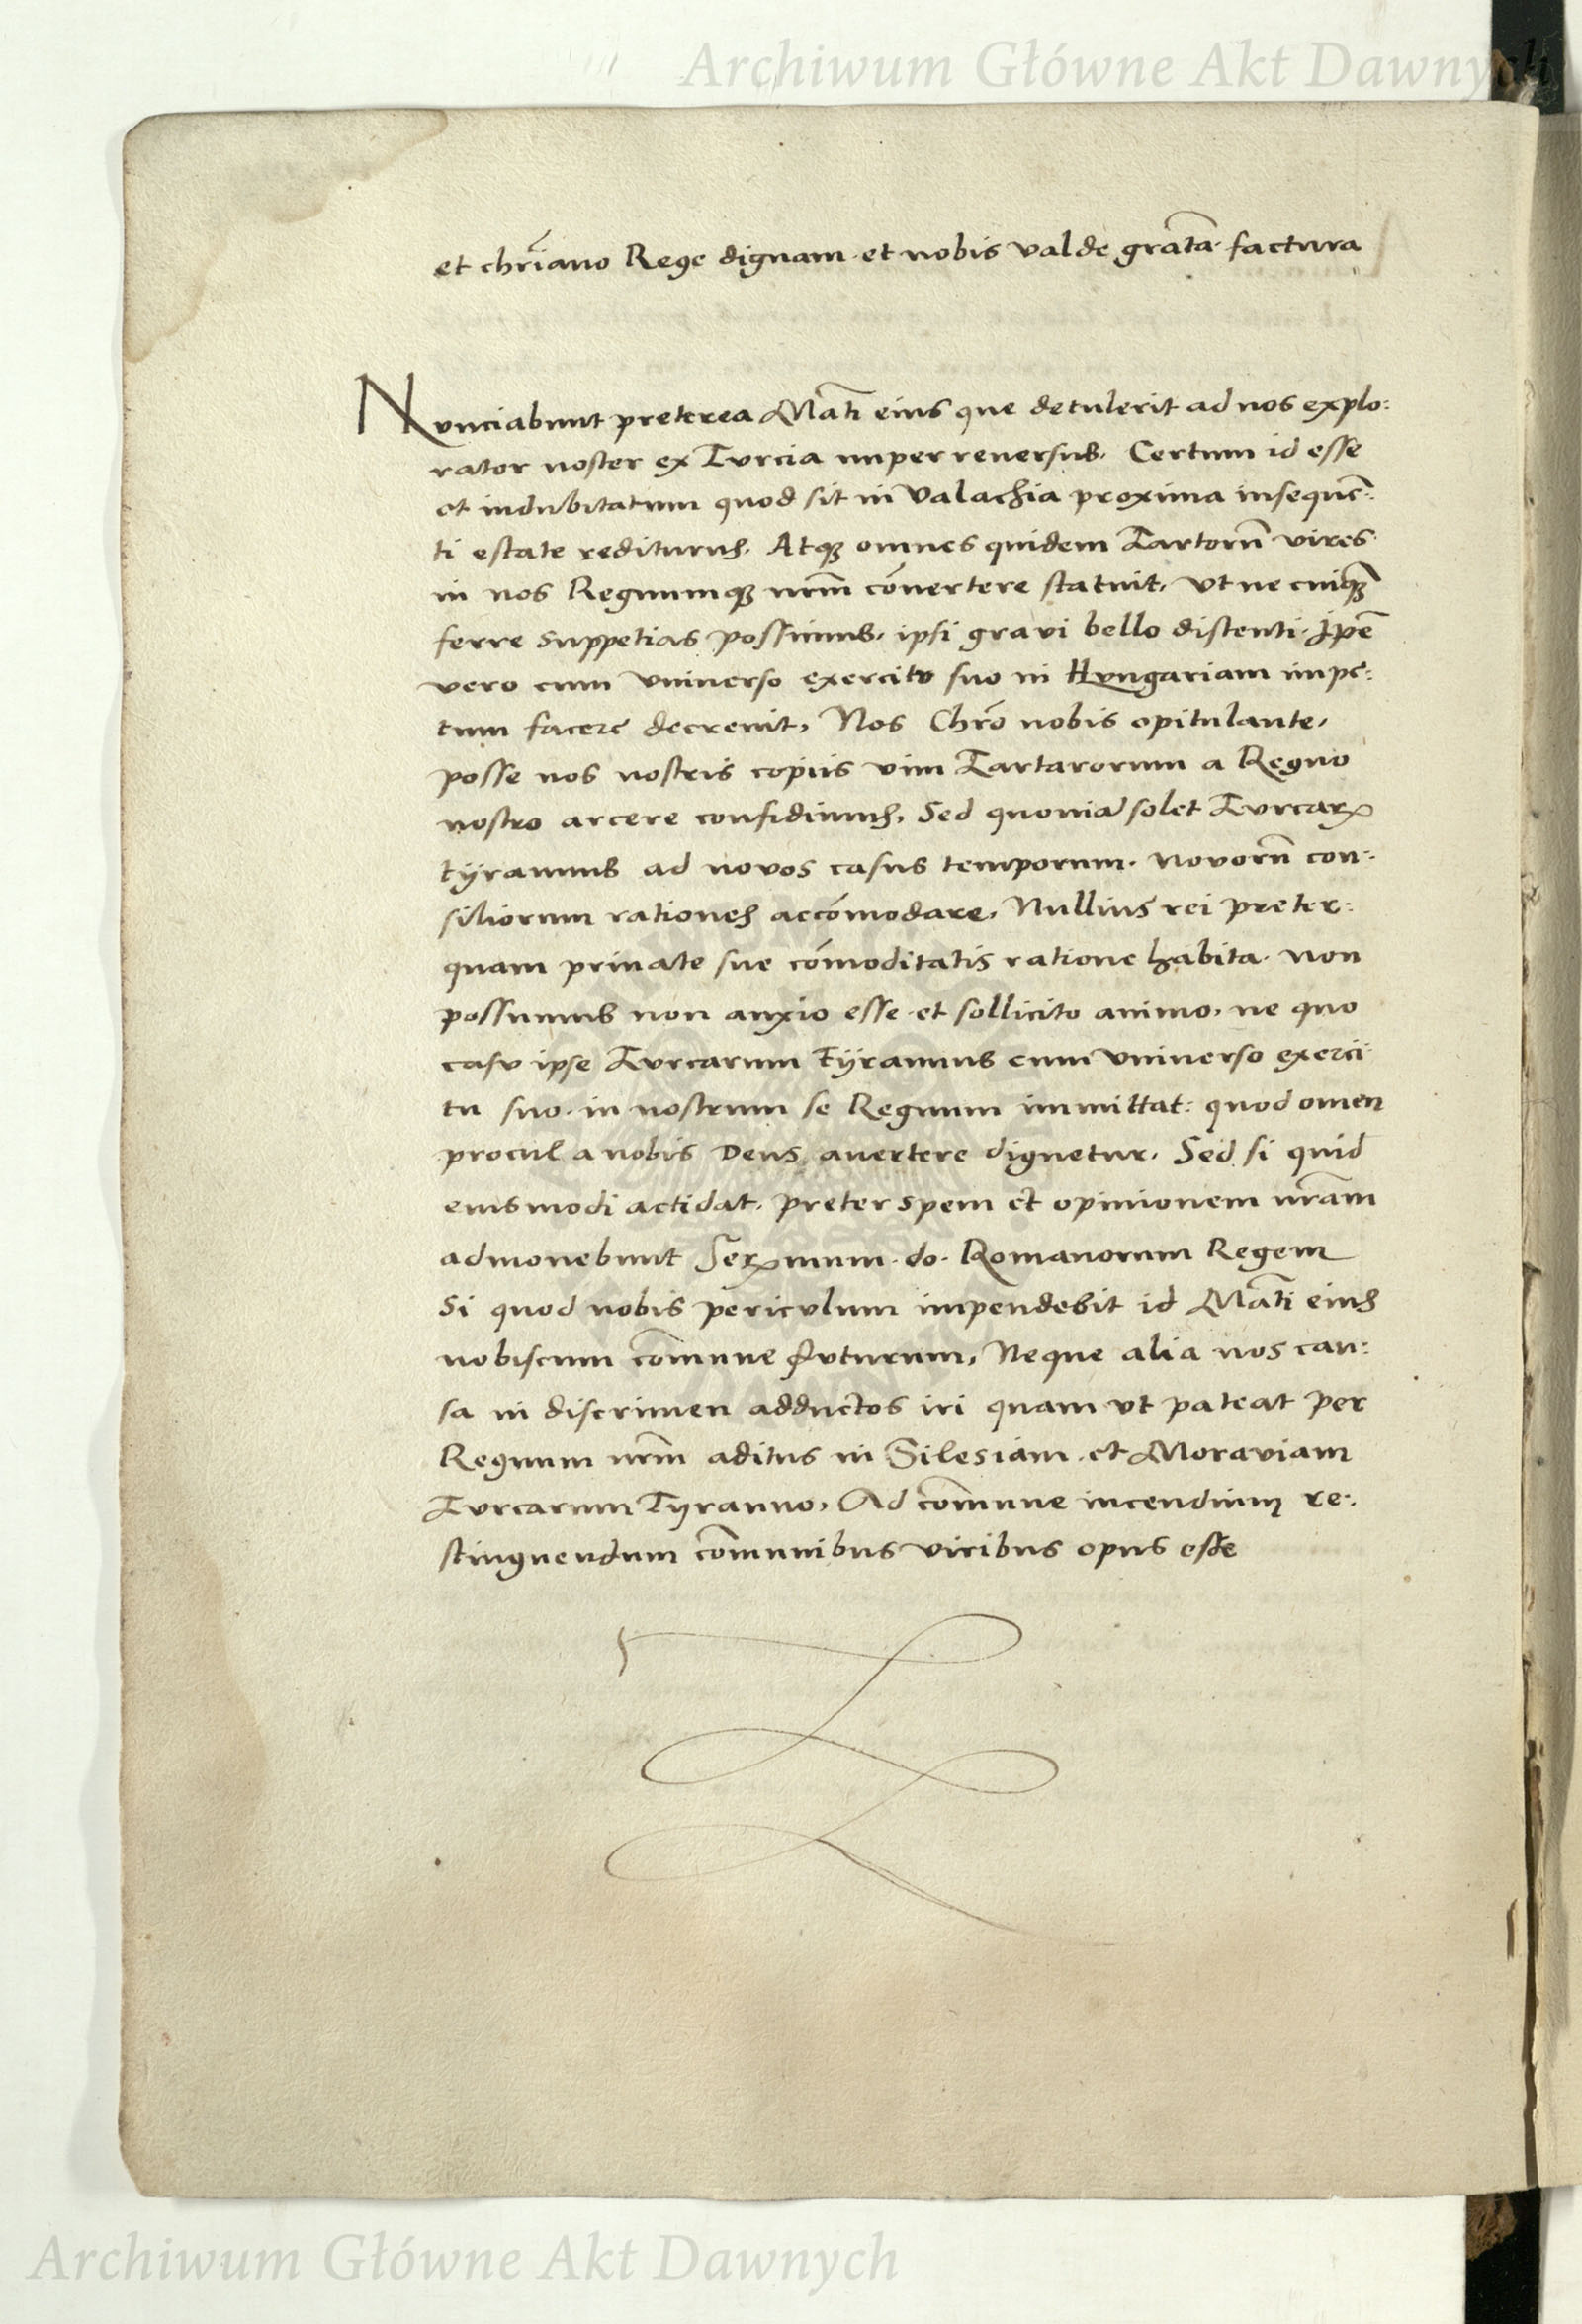 Archiwum Główne Akt Dawnych
et chr̃iano Rege dignam · et nobis valde grãtã · factura
Nvnciabunt preterea Mãti eius que detulerit ad nos explo:
rator noster ex Tvrcia nuper reuersus. Certum id esse
et indubitatum quod sit in Valachia proxima insequẽ:
ti estate rediturus. Atqꝫ omnes quidem Tartorũ vires
in nos Regnumqꝫ nr̃m cõuertere statuit, vt ne cuiqꝫ̃
ferre suppetias possimus, ipsi gravi bello distenti. Ipẽ
vero cum vniuerso exercitv suo in Hvngariam impe:
tum facere decreuit, Nos Chrõ nobis opitulante,
posse nos nostris copiis vim Tartarorum a Regno
nostro arcere confidimus, Sed quoniã solet Tvrcarꝝ
tÿrannus ad novos casus temporum · novorũ con:
siliorum rationes accõmodare, Nullius rei preter:
quam priuate sue cõmoditatis ratione habita · non
possumus non anxio esse et sollicito animo, ne quo
casv ipse Tvrcarum tÿrannus cum vniuerso exerci
tu suo · in nostrum se Regnum immittat: quod omen
procul a nobis Deus auertere dignetur. Sed si quid
eiusmodi accidat, preter spem et opinionem nr̃am
admonebunt Serꝝmum · do · Romanorum Regem
Si quod nobis pericvlum impendebit id Mãti eius
nobiscum cõmune fvturum, Neque alia nos cau:
sa in discrimen adductos iri quam vt pateat per
Regnum nr̃m aditus in Silesiam · et Moraviam
Tvrcarum Tyranno, Ad cõmune incendium re:
stinguendum cõmunibus viribus opus esse
Archiwum Główne Akt Dawnych